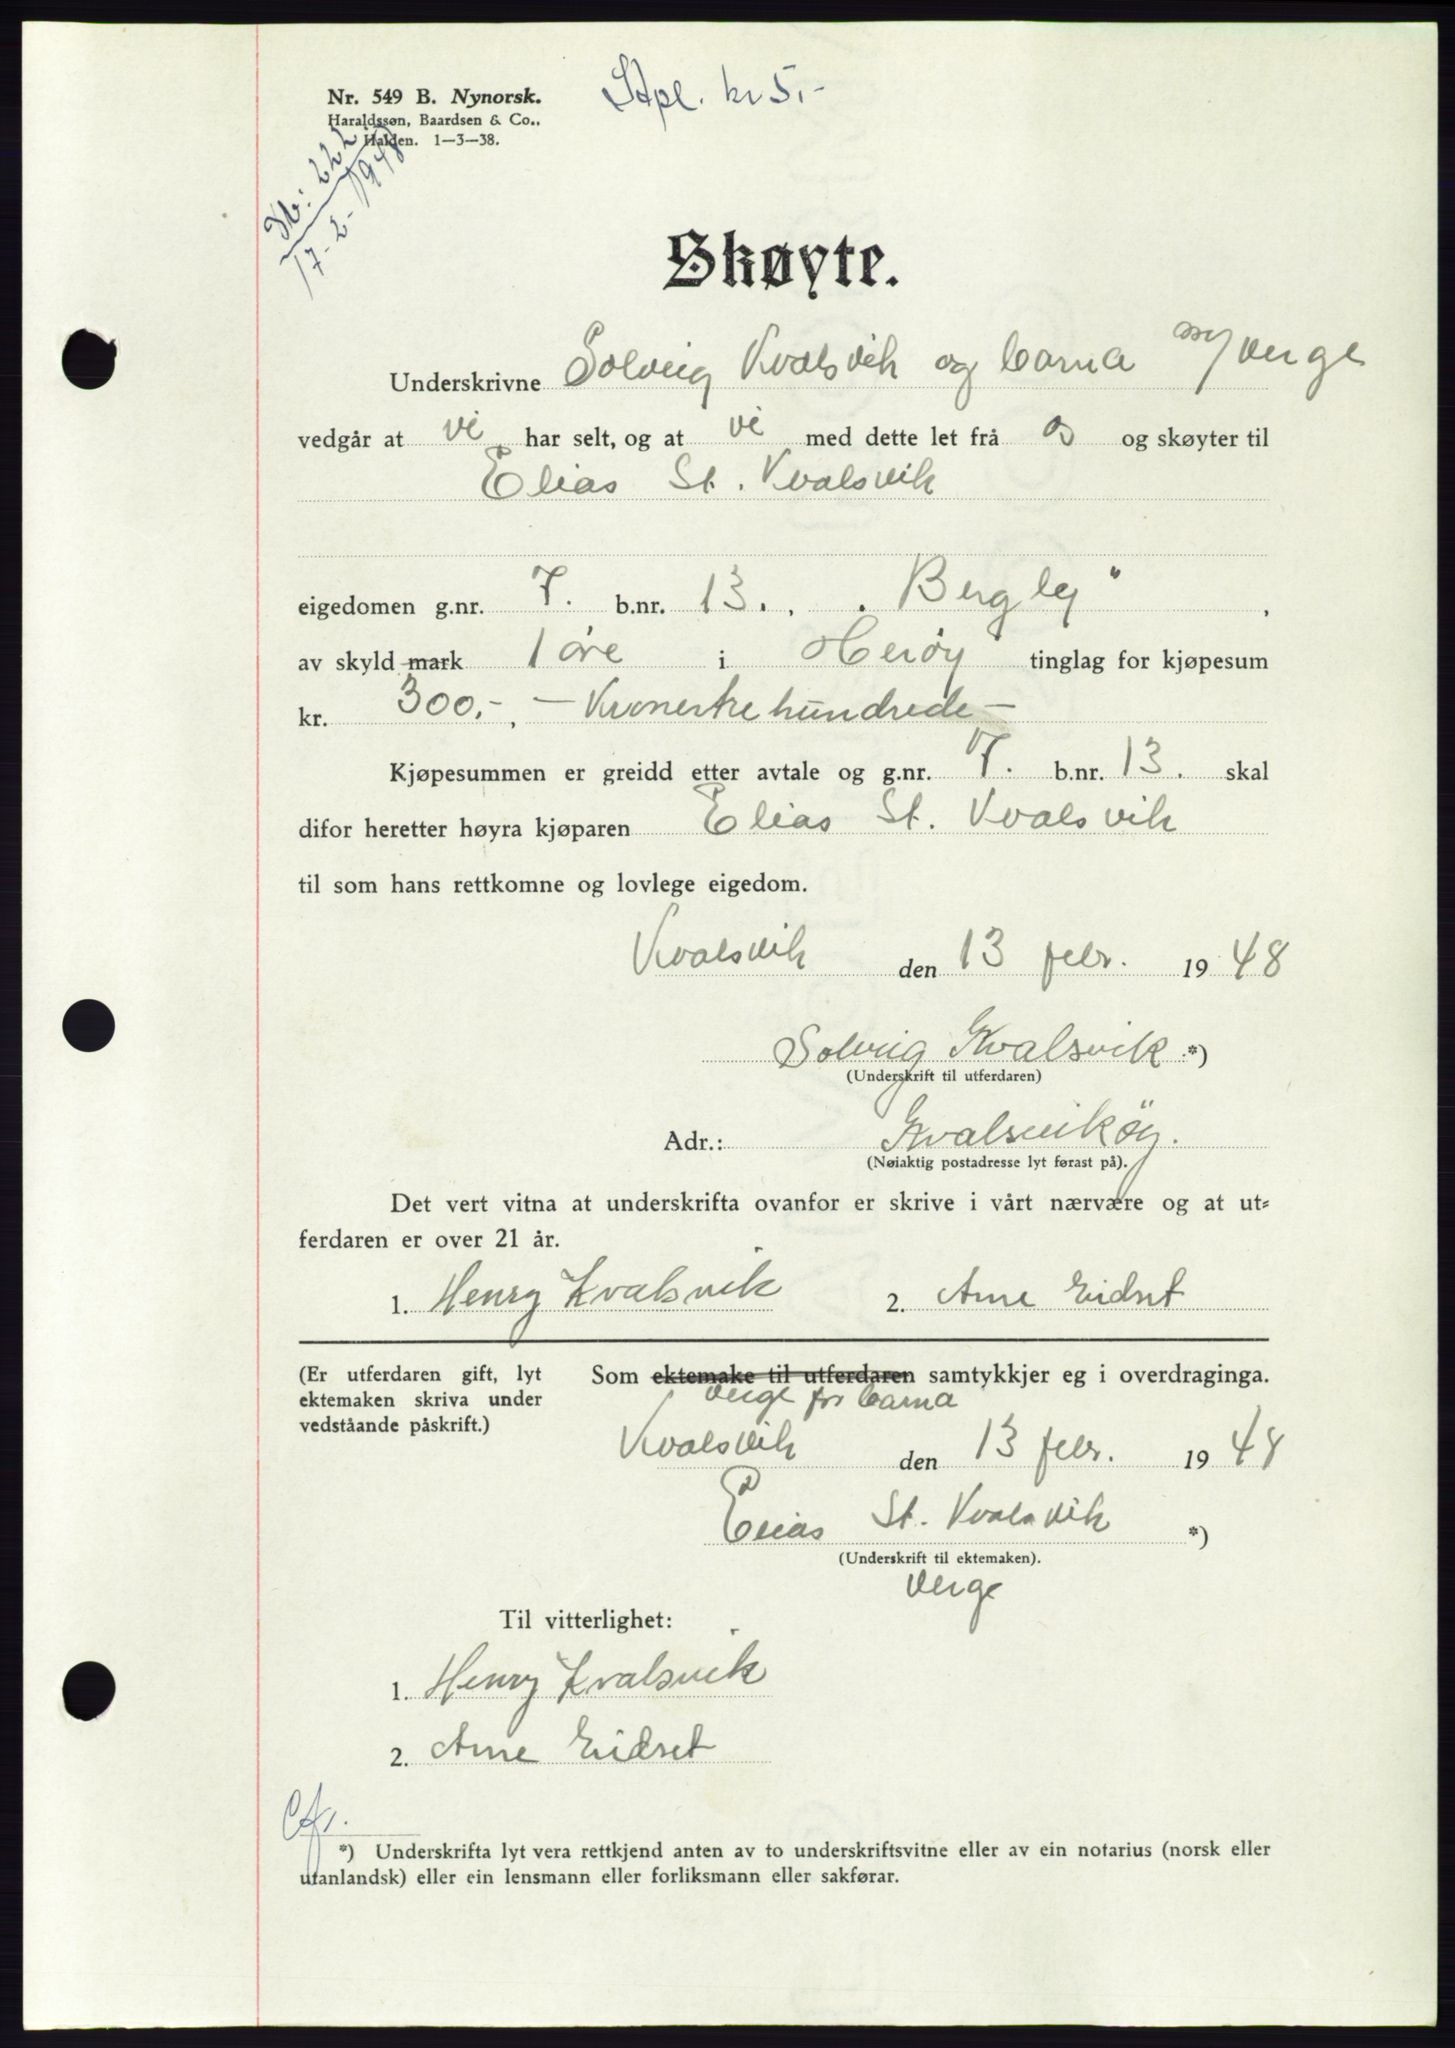 Nr. 549 B. Nynorsk.
Haraldssøn, Baardsen & Co.,
Halden. 1—3—38.
Stpl. kr 5,-
Db: 222
17-2-1948
Skøyte.
Underskrivne Solveig Kvalsvik og barna v/verge
vedgår at vi har selt, og at vi med dette let frå os og skøyter til
Elias St. Kvalsvik
eigedomen g.nr. 7. b.nr. 13., „Bergly",
av skyld mark 1 øre i Herøy tinglag for kjøpesum
kr. 300,-, — Kronertrehundrede —
Kjøpesummen er greidd etter avtale og g.nr. 7. b.nr. 13. skal
difor heretter høyra kjøparen Elias St. Kvalsvik
til som hans rettkomne og lovlege eigedom.
Kvalsvik den 13 febr. 1948
Solveig Kvalsvik *)
(Underskrift til utferdaren)
Adr.: Kvalsvikøy.
(Nøiaktig postadresse lyt førast på).
Det vert vitna at underskrifta ovanfor er skrive i vårt nærvære og at ut=
ferdaren er over 21 år.
1. Henry Kvalsvik 2. Arne Eidset
(Er utferdaren gift, lyt
ektemaken skriva under
vedståande påskrift.)
Som ektemake til utferdaren samtykkjer eg i overdraginga.
verge for barna
Kvalsvik den 13 febr. 1948
Elias St. Kvalsvik *)
(Underskrift til ektemaken).
verge
Til vitterlighet:
1. Henry Kvalsvik
2. Arne Eidset
*) Underskrifta lyt vera rettkjend anten av to underskriftsvitne eller av ein notarius (norsk eller
utanlandsk) eller ein lensmann eller forliksmann eller sakførar.